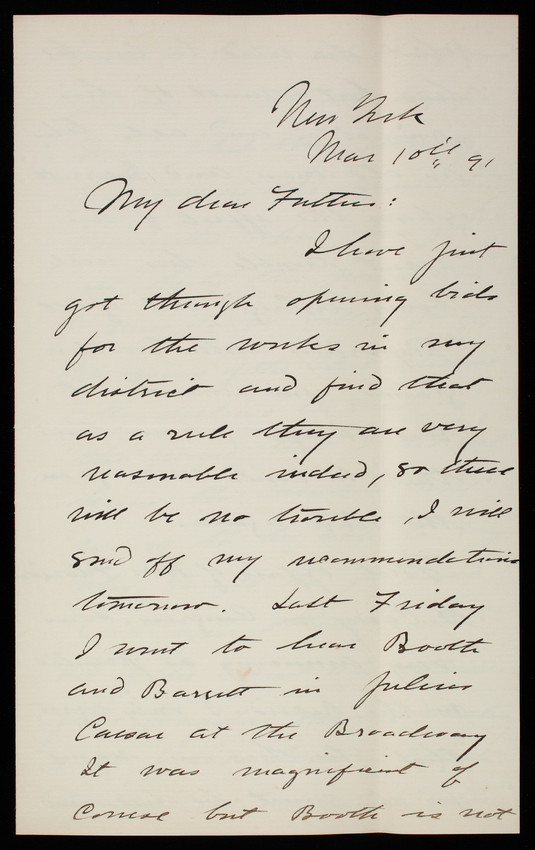 New York
Mar 10th 91
My dear Father:
I have just
got through opening bids
for the works in my
district and find that
as a rule they are very
reasonable indeed, so there
will be no trouble, I will
send off my recommendations
tomorrow. Last Friday
I went to hear Booth
and Barrett in Julius
Caesar at the Broadway
It was magnificent of
course but Booth is not